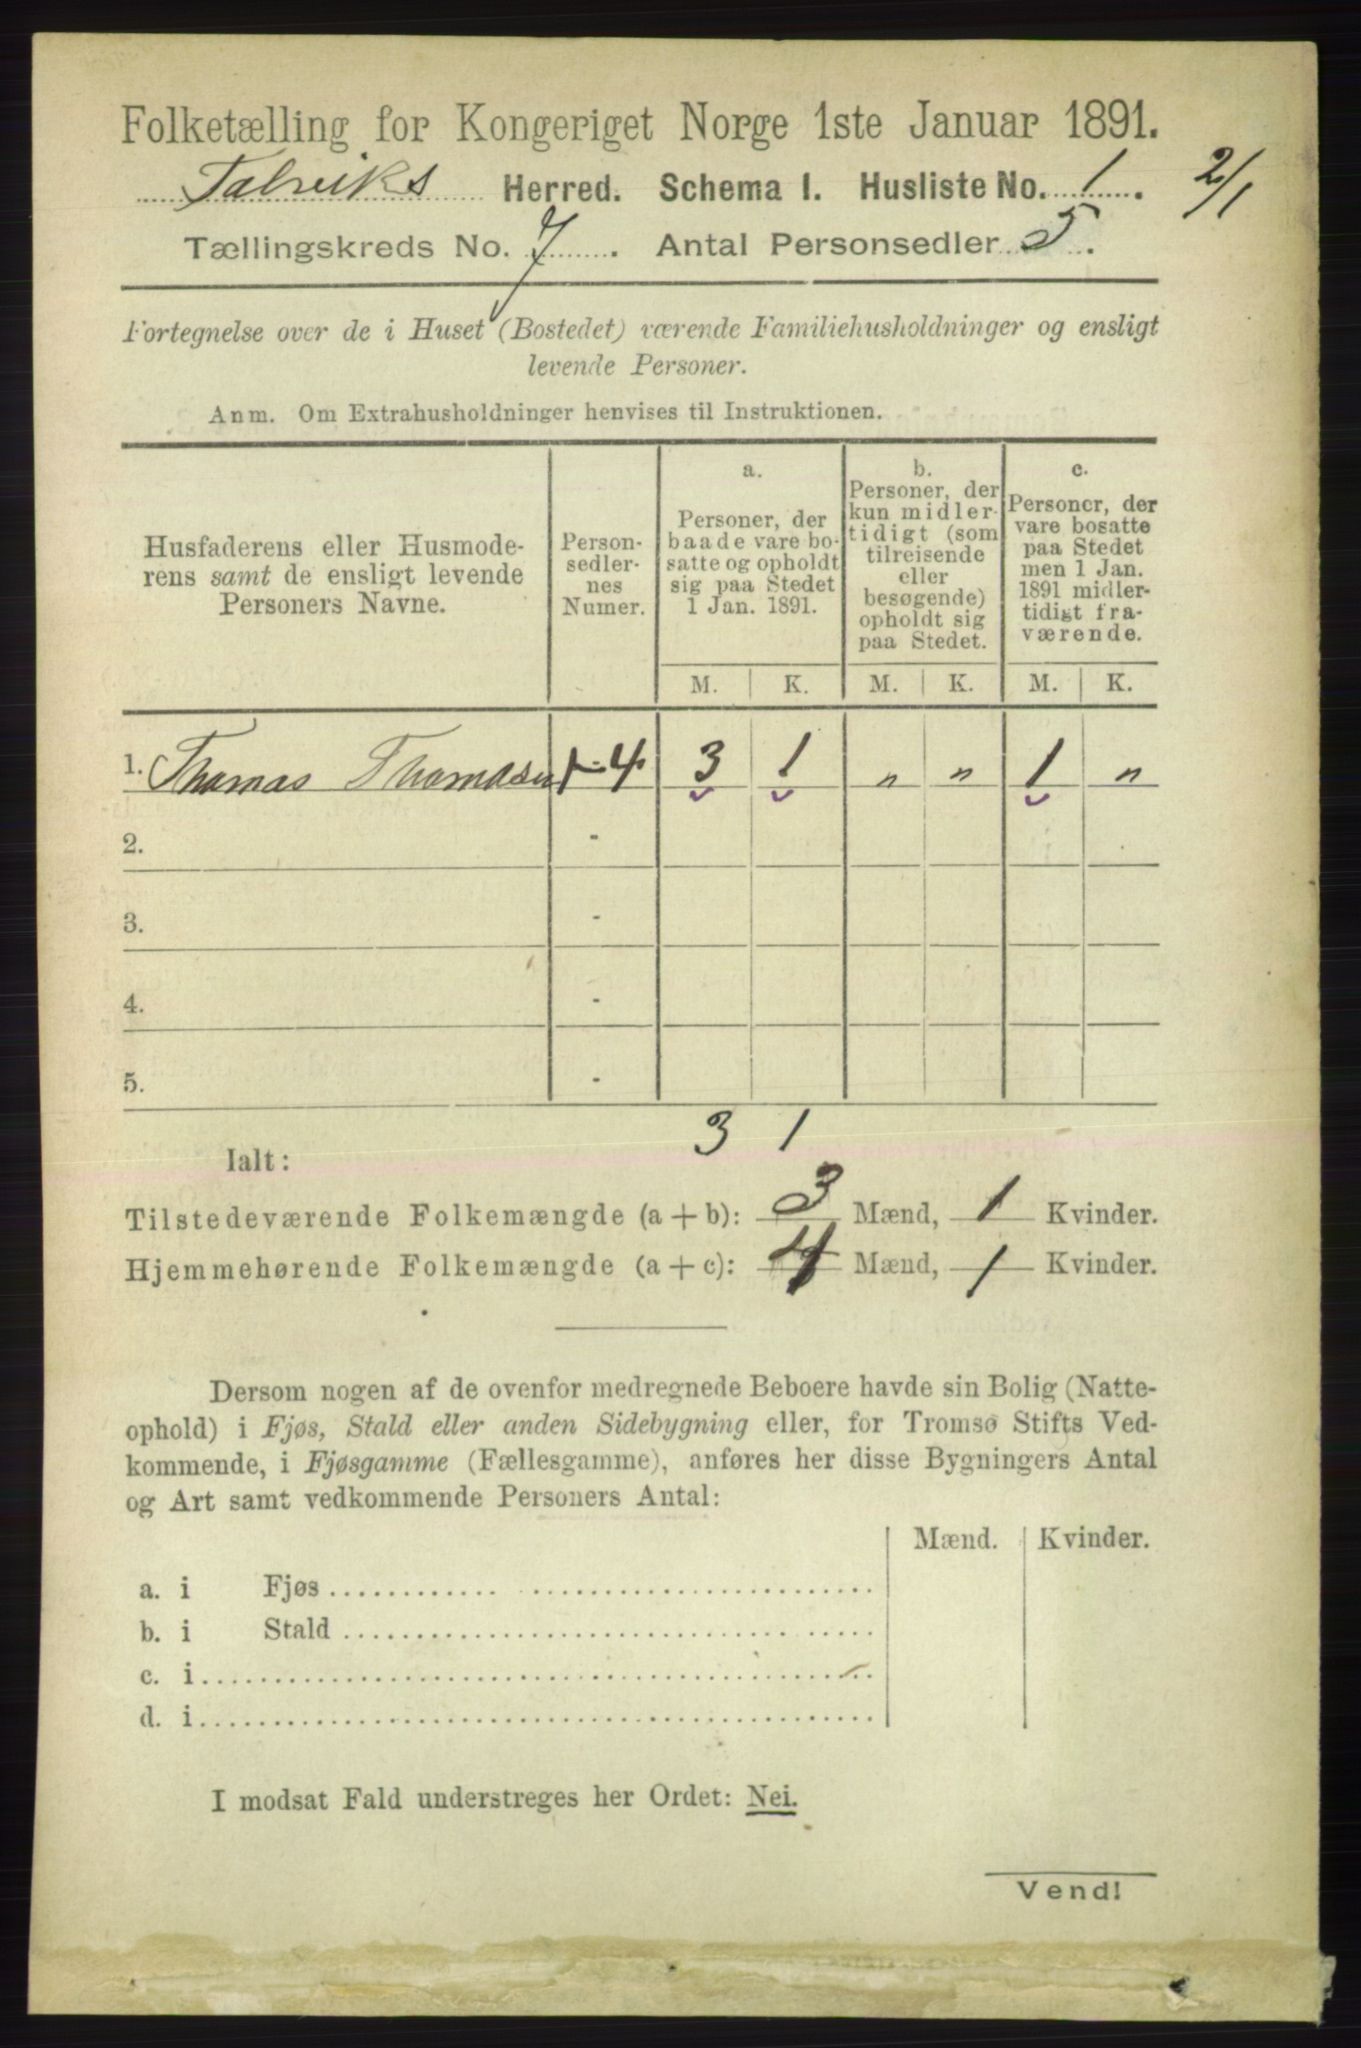 Folketælling for Kongeriget Norge 1ste Januar 1891.
Talviks Herred. Schema I. Husliste No. 1. 2/1
Tællingskreds No. 7. Antal Personsedler 5.
Fortegnelse over de i Huset (Bostedet) værende Familiehusholdninger og ensligt
levende Personer.
Anm. Om Extrahusholdninger henvises til Instruktionen.
Husfaderens eller Husmode-
rens samt de ensligt levende
Personers Navne.
Person-
sedler-
nes
Numer.
a.
Personer, der
baade vare bo-
satte og opholdt
sig paa Stedet
1 Jan. 1891.
b.
Personer, der
kun midler-
tidigt (som
tilreisende
eller
besøgende)
opholdt sig
paa Stedet.
c.
Personer, der
vare bosatte
paa Stedet
men 1 Jan.
1891 midler-
tidigt fra-
værende.
M. K. M. K. M. K.
1. Thomas Thomasen 1-4 3 1 " " 1 "
2. -
3. -
4. -
5. -
Ialt: 3 1
Tilstedeværende Folkemængde (a + b): 3 Mænd, 1 Kvinder.
Hjemmehørende Folkemængde (a + c): 4 Mænd, 1 Kvinder.
Dersom nogen af de ovenfor medregnede Beboere havde sin Bolig (Natte-
ophold) i Fjøs, Stald eller anden Sidebygning eller, for Tromsø Stifts Ved-
kommende, i Fjøsgamme (Fællesgamme), anføres her disse Bygningers Antal
og Art samt vedkommende Personers Antal:
Mænd. Kvinder.
a. i Fjøs
b. i Stald
c. i
d. i
I modsat Fald understreges her Ordet: Nei.
Vend!